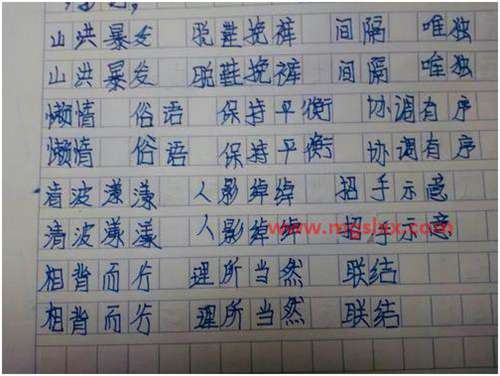 山洪暴发 脱鞋挽裤 间隔 唯独
山洪暴发 脱鞋挽裤 间隔 唯独
懒惰 俗语 保持平衡 协调有序
懒惰 俗语 保持平衡 协调有序
清波漾漾 人影绰绰 招手示意
清波漾漾 人影绰绰 招手示意
www.mgslnx.com
相背而行 理所当然 联结
相背而行 理所当然 联结